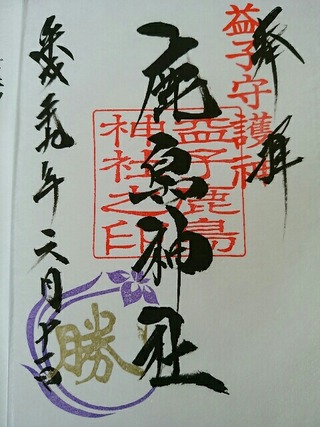 奉拝
益子守護社
鹿島神社
益子鹿島
神社之印
平成廿九年六月十
勝